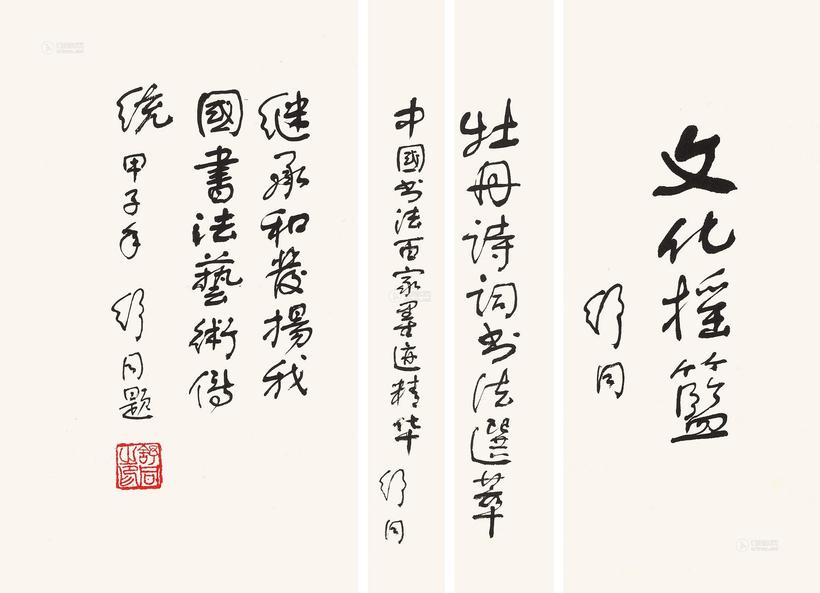 文化摇篮
舒同
牡丹诗词书法選萃
中國书法百家墨迹精华
舒同
继承和發揚我
國書法藝術傳
统 甲子年 舒同题
舒同之印